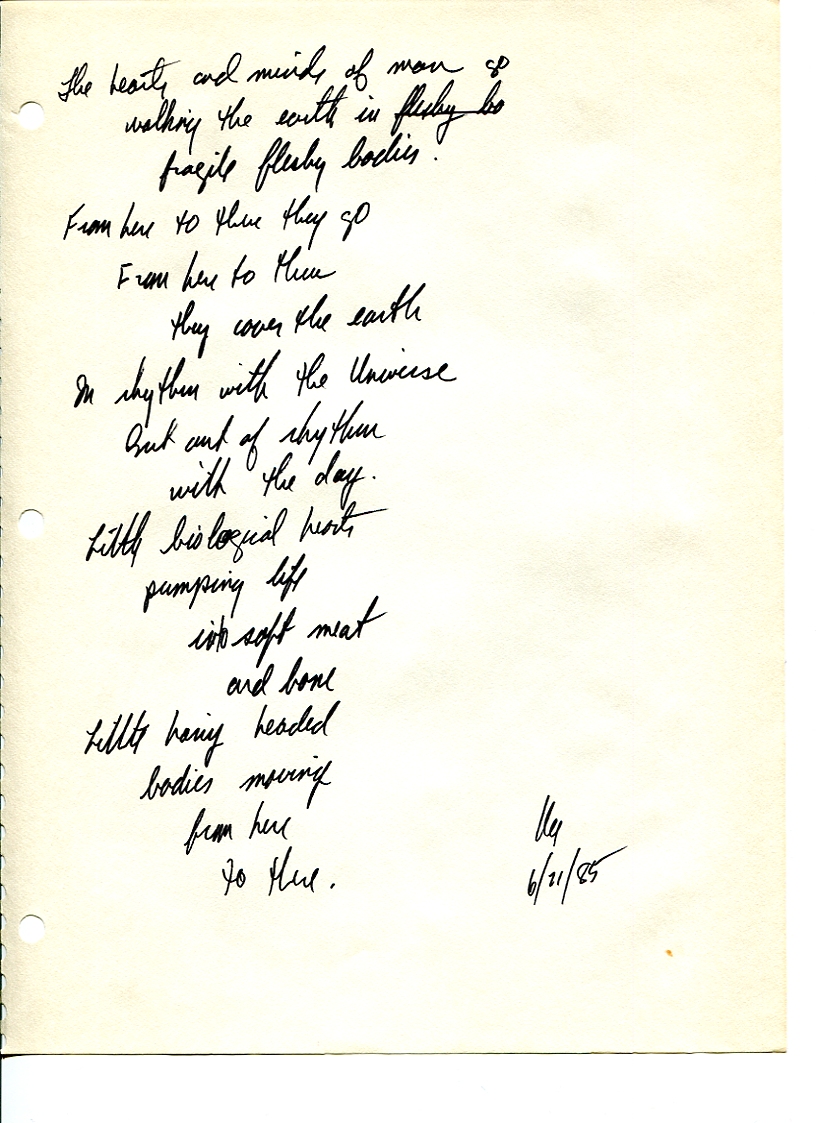 The hearts and minds of man go
walking the earth in fleshy bo
fragile fleshy bodies.
From here to there they go
From here to there
they cover the earth
In rhythm with the Universe
But out of rhythm
with the day.
Little biological hearts
pumping life
into soft meat
and bone
Little hairy headed
bodies moving
from here
to there.
6/21/85